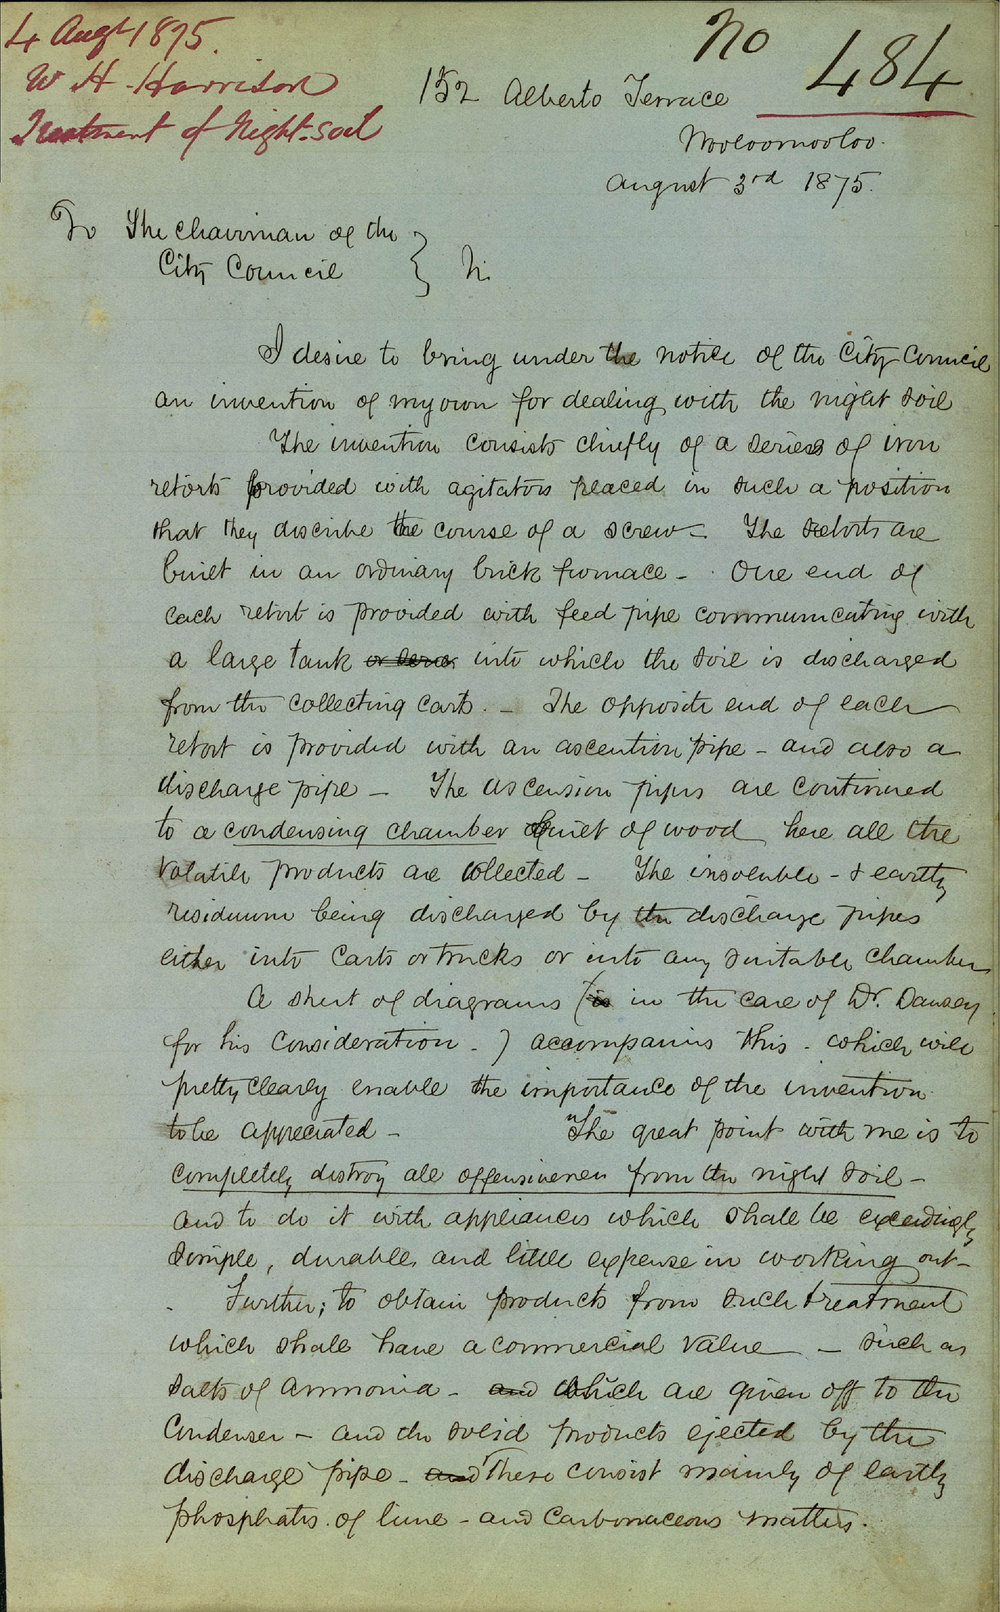 4 Augt 1875.
W H Harrison
Treatment of Night-soil
No 484
152 Alberto Terrace
Wooloomooloo.
August 3rd 1875.
To The Chairman of the
City Council
I desire to bring under the notice of the City Council
an invention of my own for dealing with the night soil
The invention consists chiefly of a series of iron
retorts provided with agitators placed in such a position
that they discribe the course of a screw - The retorts are
built in an ordinary brick furnace - One end of
each retort is provided with feed pipe communicating with
a large tank into which the soil is discharged
from the collecting carts. - The opposite end of each
retort is provided with an ascention pipe - and also a
discharge pipe - The ascension pipes are continued
to a condensing chamber built of wood here all the
volatile products are collected - The insoluble - & earthy
residuum being discharged by the discharge pipes
either into carts or trucks or into any suitable chamber
A sheet of diagrams (is in the care of Dr. Dansey
for his consideration - ) accompanies this - which will
pretty clearly enable the importance of the invention
to be appreciated - "The great point with me is to
completely distroy all offensiveness from the night soil -
and to do it with appliances which shall be exceedingly
simple, durable, and little expense in working out -
Further; to obtain products from such treatment
which shall have a commercial value - such as
salts of ammonia - and which are given off to the
Condenser - and the solid products ejected by the
discharge pipe - and These consist mainly of earthy
phosphates of lime - and Carbonaceous matters.